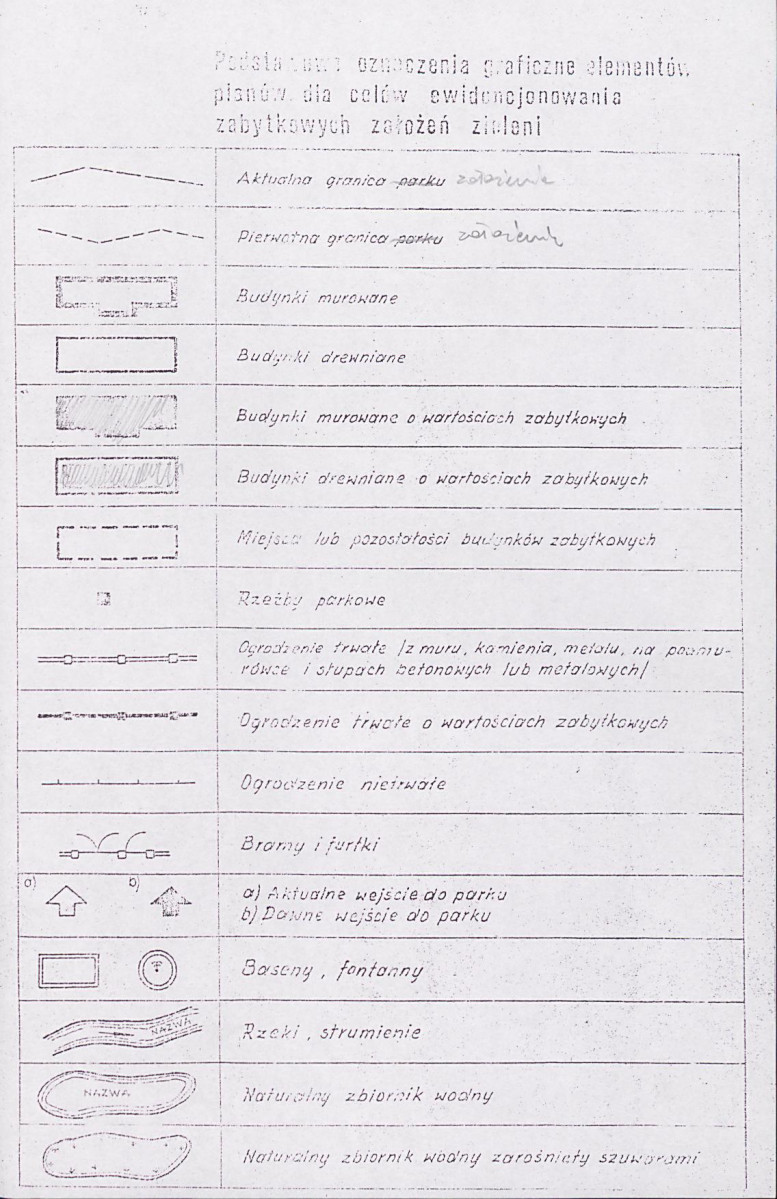 Podstawowe oznaczenia graficzne elementów
planów dla celów ewidencjonowania
zabytkowych założeń zieleni
Aktualna granica parku założenia
Pierwotna granica parku założenia
Budynki murowane
Budynki drewniane
Budynki murowane o wartościach zabytkowych
Budynki drewniane o wartościach zabytkowych
Miejsca lub pozostałości budynków zabytkowych
Rzeźby parkowe
Ogrodzenie trwałe /z muru, kamienia, metalu, na podmu-
rówce i słupach betonowych lub metalowych/
Ogrodzenie trwałe o wartościach zabytkowych
Ogrodzenie nietrwałe
Bramy i furtki
a) b)
a) Aktualne wejście do parku
b) Dawne wejście do parku
Baseny, fontanny
NAZWA
Rzeki, strumienie
NAZWA
Naturalny zbiornik wodny
Naturalny zbiornik wodny zarośnięty szuwarami